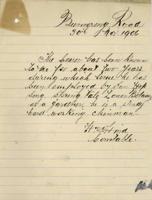 Burnerang Road
30th Nov 1906
The bearer has been known
to me for about two years
during which time he has
been employed by
Spring Vale
as a gardener he is a steady
hard working chinaman
Constable